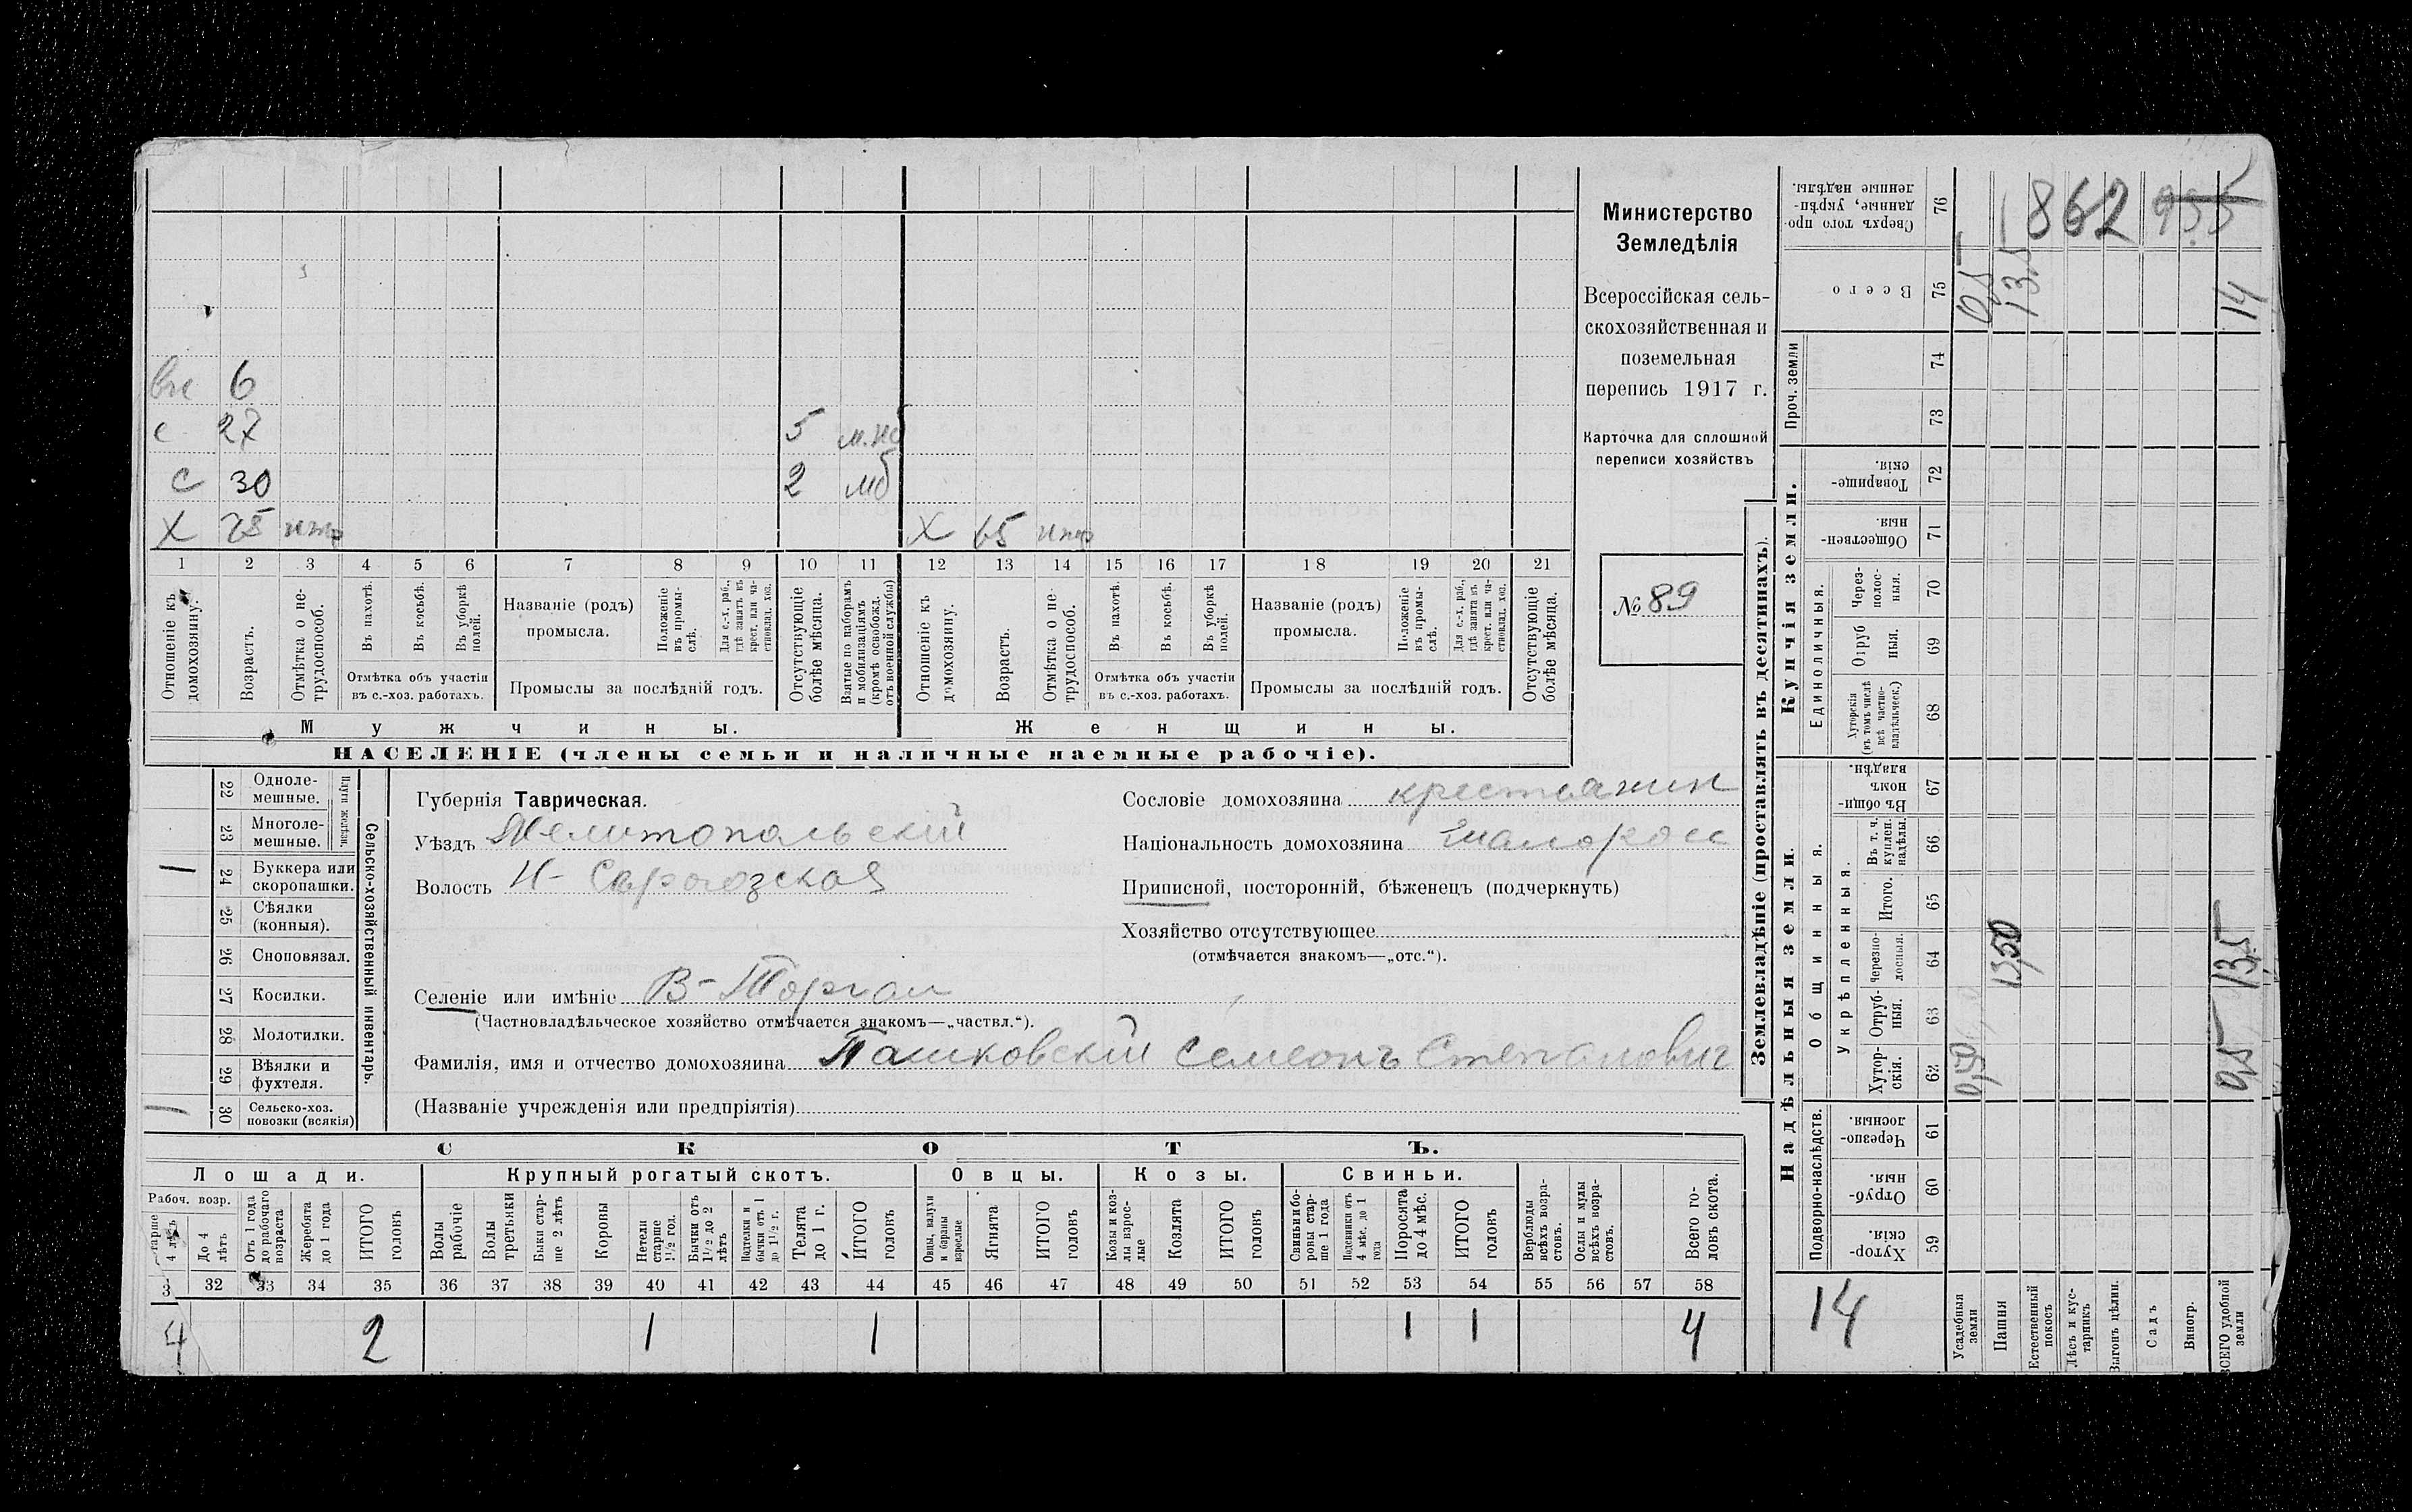 Министерство
Земледѣлія
Всероссійская сель-
скохозяйственная и
поземельная
перепись 1917 г.
Карточка для сплошной
переписи хозяйствъ
№ 89
6
с 27 5
с 30 2 мб
Х 75 Х 65
1 2 3 4 5 6 7 8 9 10 11 12 13 14 15 16 17 18 19 20 21
Отношеніе къ домохозяину.
Возрастъ.
Отмѣтка о не-трудоспособ.
Въ пахотѣ.
Въ косьбѣ.
Въ уборкѣ полей.
Отмѣтка объ участіи
въ с.-хоз. работахъ.
Названіе (родъ)
промысла.
Положеніе въ промы-слѣ.
Для с.-х. раб., гдѣ занятъ въ крест. или ча-стновлад. хоз.
Промыслы за послѣдній годъ.
Отсутствующіе болѣе мѣсяца.
Взятые по наборамъ и мобилизаціямъ (кромѣ освобожд. отъ военной службы)
Отношеніе къ домохозяину.
Возрастъ.
Отмѣтка о не-трудоспособ.
Въ пахотѣ.
Въ косьбѣ.
Въ уборкѣ полей.
Отмѣтка объ участіи
въ с.-хоз. работахъ.
Названіе (родъ)
промысла.
Положеніе въ промы-слѣ.
Для с.-х. раб., гдѣ занята въ крест. или ча-стновлад. хоз.
Промыслы за послѣдній годъ.
Отсутствующіе болѣе мѣсяца.
Мужчины.
Женщины.
НАСЕЛЕНІЕ (члены семьи и наличные наемные рабочіе).
Сельско-хозяйственный инвентарь.
Плуги желѣзн.
22 Одноле-мешные.
23 Многоле-мешные.
1 24 Буккера или скоропашки.
25 Сѣялки (конныя).
26 Сноповязал.
27 Косилки.
28 Молотилки.
29 Вѣялки и фухтеля.
1 30 Сельско-хоз. повозки (всякія)
Губернія Таврическая.
Уѣздъ Мелитопольскій
Волость Н-Сарогозская
Сословіе домохозяина крестьянин
Національность домохозяина малоросс
Приписной, посторонній, бѣженецъ (подчеркнуть)
Хозяйство отсутствующее
(отмѣчается знакомъ—„отс.“).
Селеніе или имѣніе В-Торгаи
(Частновладѣльческое хозяйство отмѣчается знакомъ—„частвл.“).
Фамилія, имя и отчество домохозяина Пашковскій Семеонъ Степанович
(Названіе учрежденія или предпріятія)
СКОТЪ.
Лошади.
Крупный рогатый скотъ.
Овцы.
Козы.
Свиньи.
Рабоч. возр.
До 4 лѣтъ
Отъ 1 года до рабочаго возраста
Жеребята до 1 года
ИТОГО головъ
Волы рабочіе
Волы третьяки
Быки стар-ше 2 лѣтъ
Коровы
Нетели старше 1½ год.
Бычки отъ 1½ до 2 лѣтъ
Подтелки и бычки отъ 1 до 1½ г.
Телята до 1 г.
ИТОГО головъ
Овцы, валухи и бараны взрослые
Ягнята
ИТОГО головъ
Козы и коз-лы взрос-лые
Козлята
ИТОГО головъ
Свиньи и бо-ровы стар-ше 1 года
Подсвинки отъ 4 мѣс. до 1 года
Поросята до 4 мѣс.
ИТОГО головъ
Верблюды всѣхъ возра-стовъ.
Ослы и мулы всѣхъ возра-стовъ.
Всего го-ловъ скота.
32 33 34 35 36 37 38 39 40 41 42 43 44 45 46 47 48 49 50 51 52 53 54 55 56 57 58
2 1 1 1 1 4
Землевладѣніе (проставлять въ десятинахъ).
Надѣльныя земли.
Купчія земли.
Проч. земли
Подворно-наслѣдств.
Общинныя.
Укрѣпленныя.
Единоличныя.
Хутор-скія. 59
Отруб-ныя. 60
Черезпо-лосныя 61
Хутор-скія. 62
Отруб-ныя. 63
Черезпо-лосныя. 64
Итого. 65
Въ т. ч. куплен. надѣлы. 66
Въ общи-номъ владѣн. 67
Хуторскія (въ томъ числѣ всѣ частно-владѣльческ.) 68
Отруб ныя. 69
Через-полос-ныя. 70
Обществен-ныя. 71
Товарище-скія. 72
73
74
Всего 75
Сверхъ того про-данные, укрѣп-ленные надѣлы. 76
862
935
14
Усадебныя земли 0,50 0,5
Пашня 13,50 13,5
Естественный покосъ
Лѣсъ и кус-тарникъ
Выгонъ цѣлин.
Садъ
Виногр.
ВСЕГО удобной земли 0,5 13,5 14